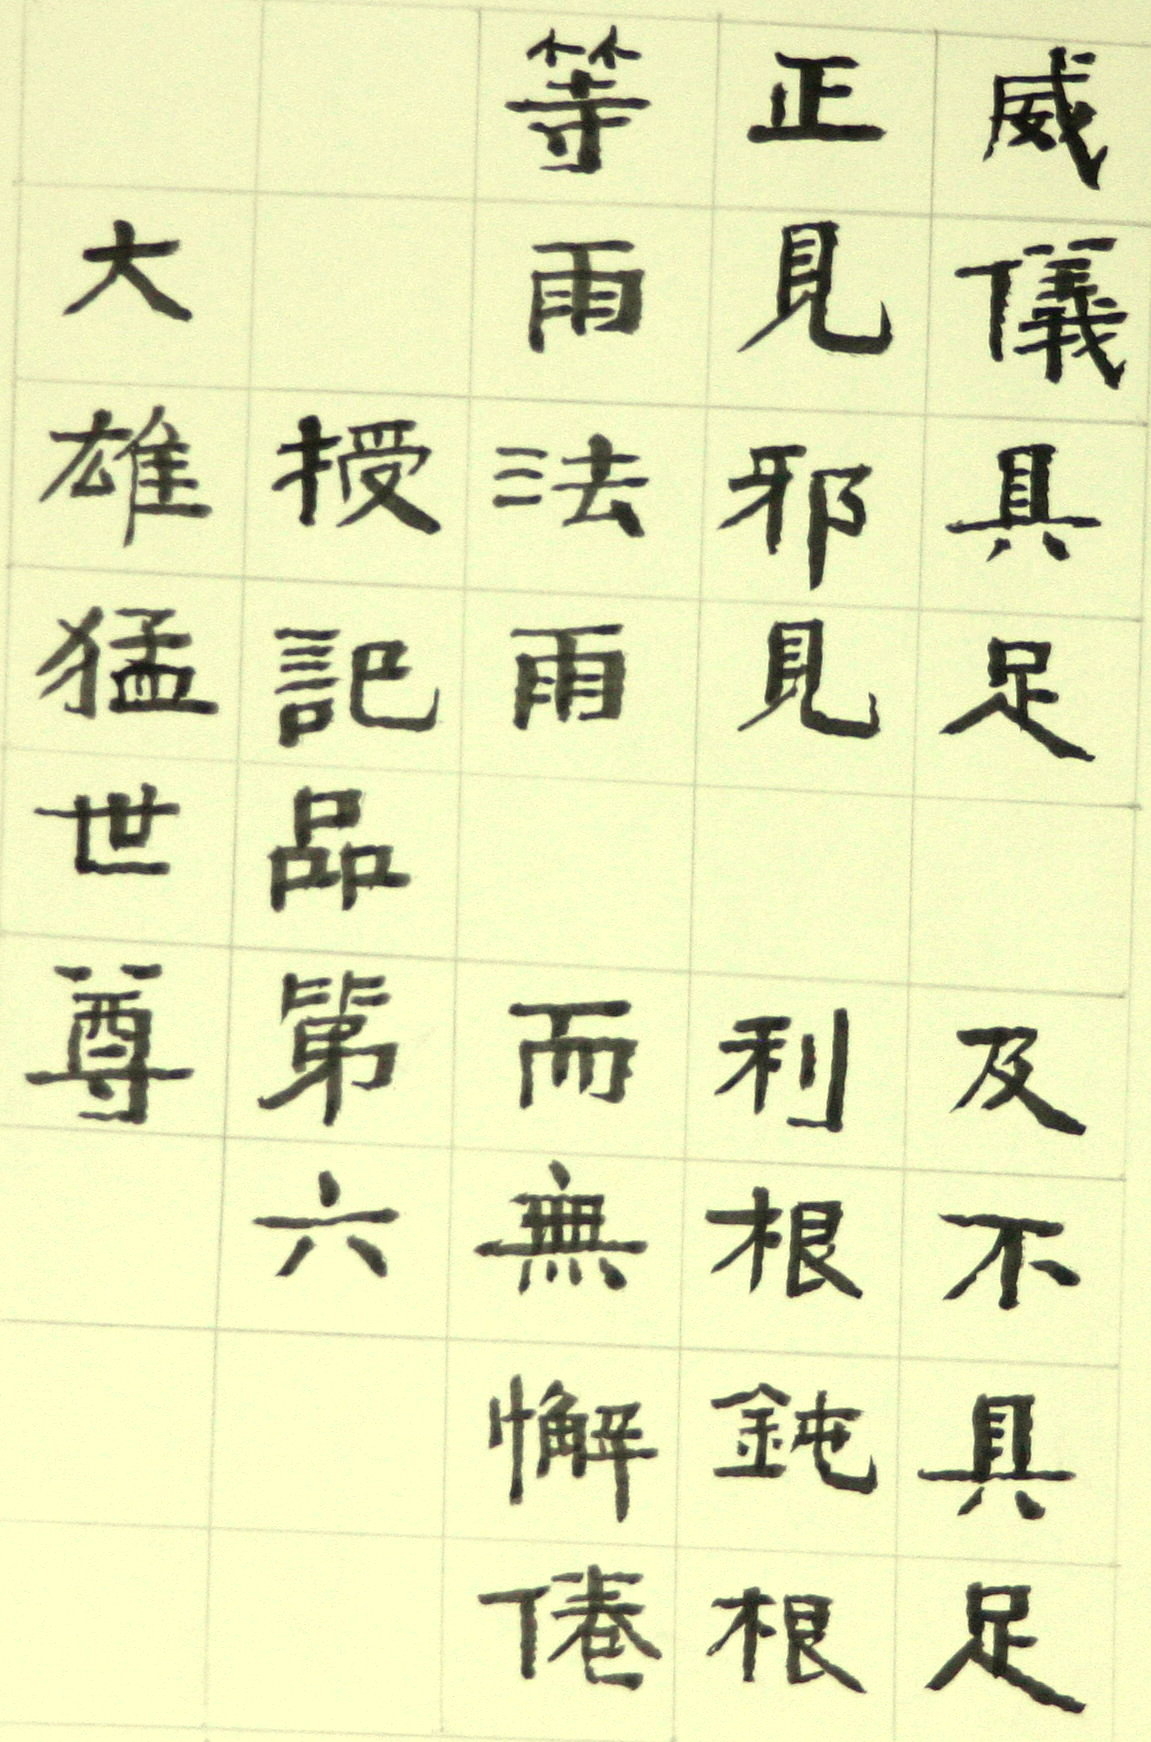 威儀具足　及不具足
正見邪見　利根鈍根
等雨法雨　而無懈倦
授記品第六
大雄猛世尊